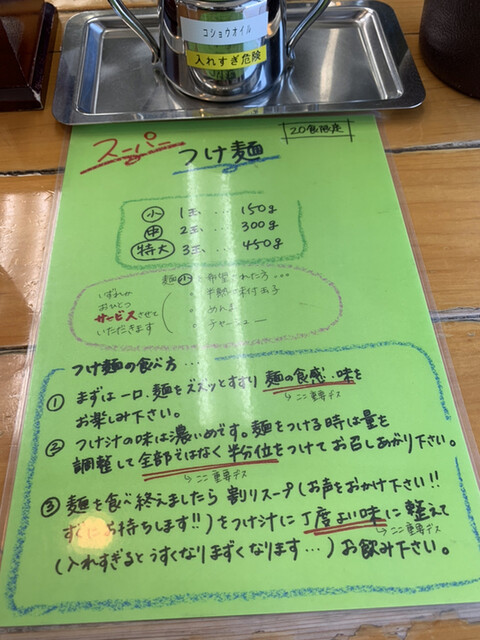 コショウオイル
入れすぎ危険
20食限定
スーパー
つけ麺
小 1玉 … 150g
中 2玉 … 300g
特大 3玉 … 450g
麺小を希望された方…
いずれか
おひとつ
サービスさせて
いただきます
・半熟味付玉子
・めんま
・チャーシュー
つけ麺の食べ方…
① まずは一口、麺をズズッとすすり 麺の食感、味を
お楽しみ下さい。
ここ重要デス
② つけ汁の味は濃いめです。麺をつける時は量を
調整して全部ではなく半分位をつけてお召しあがり下さい。
ここ重要デス
③ 麺を食べ終えましたら 割りスープ(お声をおかけ下さい!!
すぐにお持ちします!!)をつけ汁に丁度よい味に整えて
ここ重要デス
(入れすぎるとうすくなりまずくなります…)お飲み下さい。